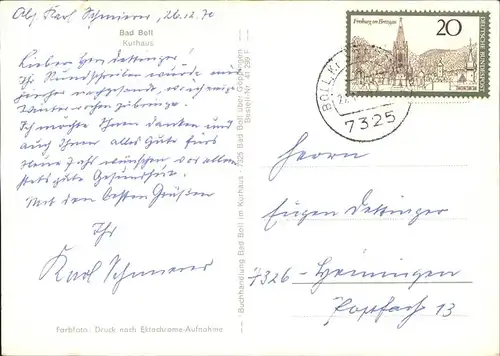 Abs. Karl Schmierer, 26.12.70
Bad Boll
Kurhaus
Lieber Herr Dettinger!
Ihr Rundschreiben wurde mir
hierher nachgesandt, wo ich einige
Winterwochen zubringe.
Ich möchte Ihnen danken und
auch Ihnen alles Gute fürs
Neue Jahr wünschen vor allem
stets gute Gesundheit.
Mit den besten Grüßen
Ihr
Karl Schmierer
Farbfoto: Druck nach Ektachrome-Aufnahme
Buchhandlung Bad Boll im Kurhaus · 7325 Bad Boll über Göppingen
Bestell-Nr. 41 299 F
Freiburg im Breisgau
20
DEUTSCHE BUNDESPOST
BOLL, K
7325
Herrn
Eugen Dettinger
7326 - Heiningen
Postfach 13